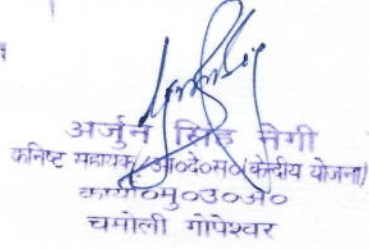 अर्जुन सिंह नेगी
कनिष्ट सहायक/आ०दे०स०(केन्द्रीय योजना)
कार्या०मु०उ०अ०
चमोली गोपेश्वर